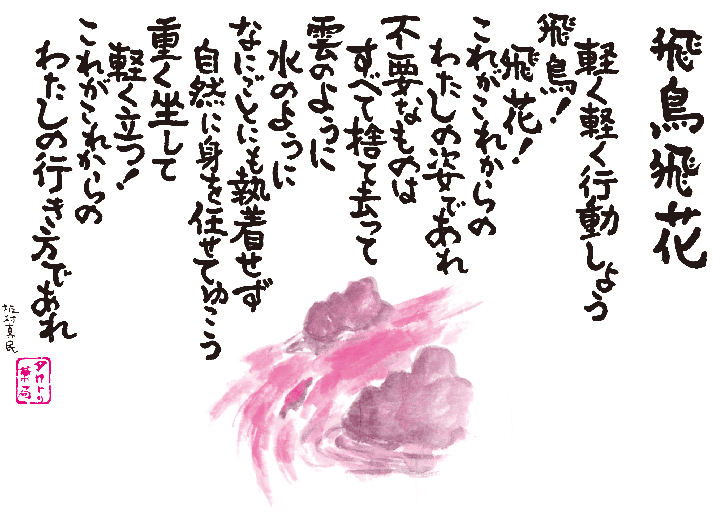 飛鳥飛花
軽く軽く行動しよう
飛鳥！
飛花！
これがこれからの
わたしの姿であれ
不要なものは
すべて捨て去って
雲のように
水のように
なにごとにも執着せず
自然に身を任せてゆこう
重く坐して
軽く立つ！
これがこれからの
わたしの行き方であれ
坂村真民
夕けトリ
薬局